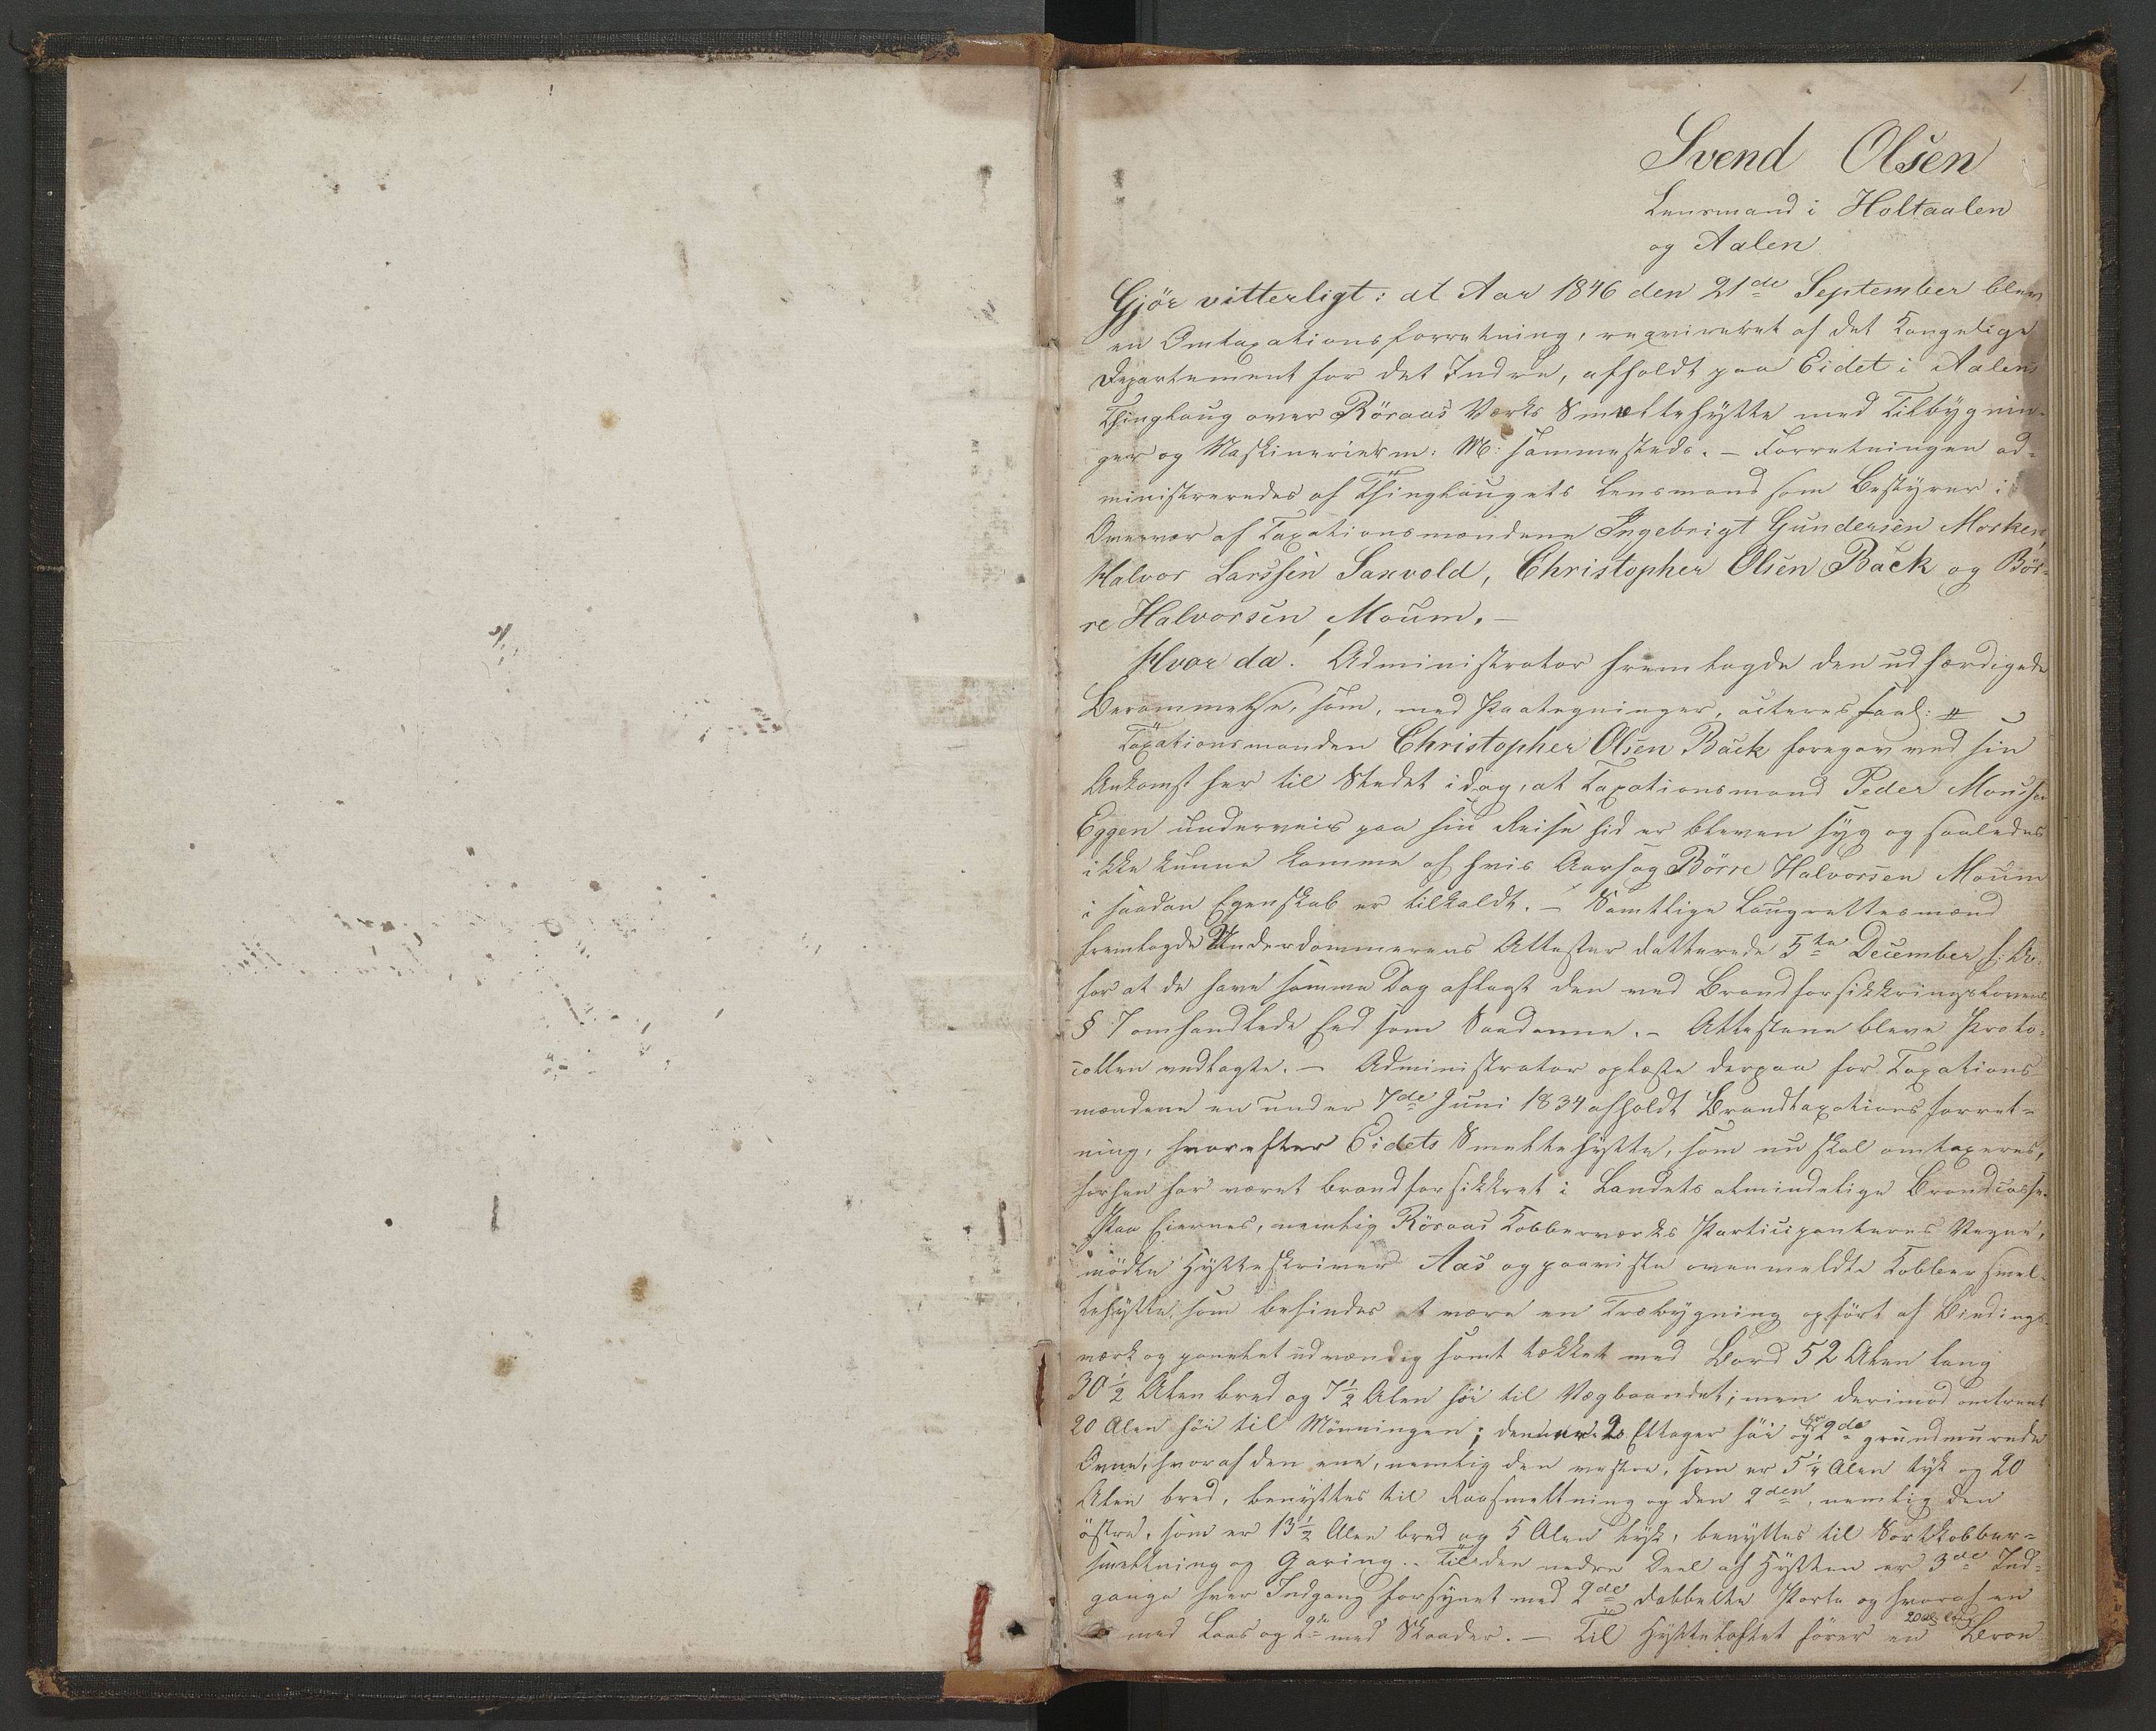 1.
Svend Olsen
Lensmand i Holtaalen
og Aalen
Gjör vitterligt: at Aar 1846 den 21de September blev
en Omtaxationsforretning, reqvireret af det Kongelige
Departement for det Indre, afholdt paa Eidet i Aalens
Thinglaug over Röraas Værks Smeltehytte med Tilbygnin-
ger og Maskinerier m: M: sammesteds. – Forretningen ad-
ministreredes af Thinglaugets Lensmand som Bestyrer i
Overvær af Taxationsmændene Ingebrigt Gundersen Morken,
Halvor Larssen Saxvold, Christopher Olsen Bäck og Bör-
re Halvorsen Moum. –
Hvor da! Administrator fremlagde den udfærdigede
Berammelse, som, med Paategninger, acteres saal:
Taxationsmanden Christopher Olsen Bäck foregav ved sin
Ankomst her til Stedet idag, at Taxationsmand Peder
Eggen underveis paa sin Reise hid er bleven syg og saaledes
ikke kunne komme af hvis Aarsag Börre Halvorsen Moum
i saadan Egenskab er tilkaldt. – Samtlige Laugrettesmænd
fremlagde Underdommerens Attester datterede 5te December f: A:
for at de have samme Dag aflagt den ved Brandforsikkringslovens
§ 7 omhandlede Eed som Saadanne. – Attesterne bleve Proto-
collen vedlagte. – Administrator oplæste derpaa for Taxations
mændene en under 7de Juni 1834 afholdt Brandtaxationsforret-
ning, hvorefter Eidets Smeltehytte, som nu skal omtaxeres,
forhen har været brandforsikkret i Landets almindelige Brandcasse.
Paa Eiernes, nemlig Röraas Kobberværks Participanteres Vegne,
mödte Hytteskriver Aas og paaviste ovenmeldte Kobbersmel-
tehytte, som befindes at være en Træbygning opfört af Bindings
værk og panelet udvændig samt tækket med Bord 52 Alen lang
30 1/2 Alen bred og 7 1/2 Alen höi til Vægbaandet; men derimod omtrent
20 Alen höi til Mönningen; den er 2 Ettager höi og har 2de grundmurede
Ovne, hvoraf den ene, nemlig den vestre, som er 5 1/4 Alen tyk og 20
Alen bred, benyttes til Raasmeltning og den 2den, nemlig den
östre, som er 13 1/2 Alen bred og 5 Alen tyk, benyttes til Sortkobber-
smeltning og Garing. – Til den nedre Deel af Hytten er 3de Ind-
gange hver Indgang forsynet med 2de dobbelte Porte og hvoraf en
med Laas og 2de med Skaader. – Til Hytteloftet förer en 20 al: lang Broe